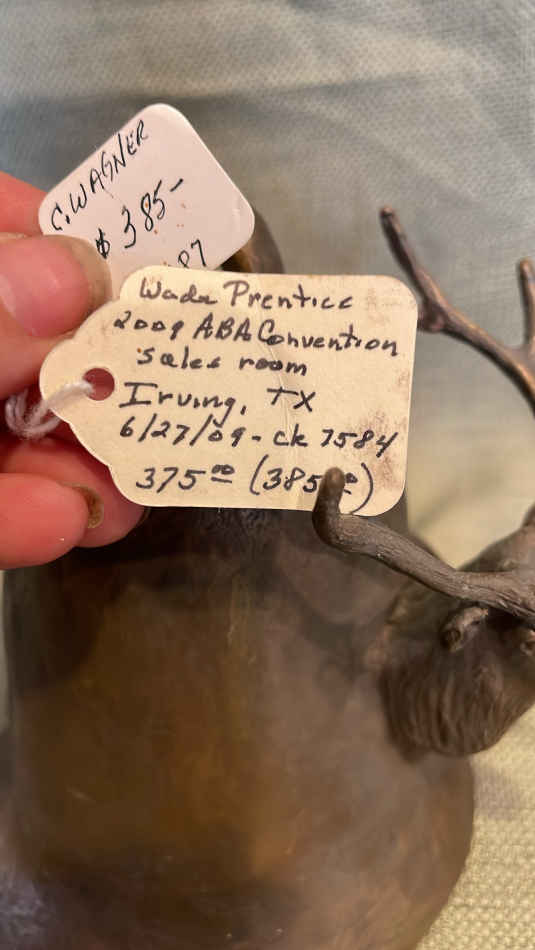 C. WAGNER
$ 385-
87
Wade Prentice
2009 ABA Convention
sales room
Irving, TX
6/27/09 - ck 7584
375.00 (385.00)